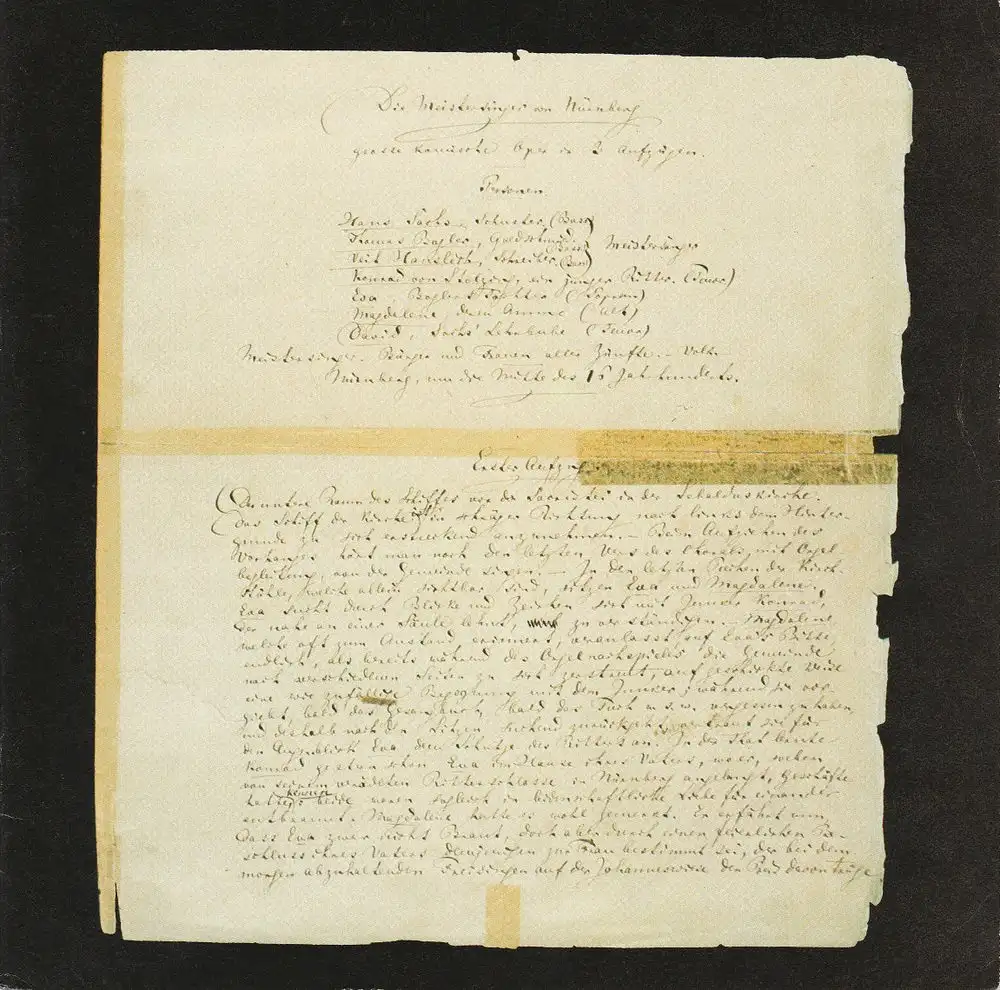 Die Meistersinger von Nürnberg
grosse komische Oper in 3 Aufzügen.
Personen
Hans Sachs, Schuster (Bass)
Thomas Bogler, Goldschmid (Bass) Meistersänger
Veit Hanslich, Schreiber (Bass)
Konrad von Stolzing, ein junger Ritter. (Tenor)
Eva, Boglers Tochter (Sopran)
Magdalene, deren Amme (Alt)
David, Sachs' Lehrbube (Tenor)
Meistersinger. Bürger und Frauen aller Zünfte. – Volk.
Nürnberg, um die Mitte des 16 Jahrhunderts.
Erster Aufzug.
(Der untere Raum des Schiffes vor der Sacristei in der Sebalduskirche.
das Schiff der Kirche ist in schräger Richtung nach links dem Hinter-
grunde zu sich erstreckend anzunehmen. – Beim Aufziehen des
Vorhanges hört man noch den letzten Vers des Chorals, mit Orgel-
begleitung, von der Gemeinde singen. – In den letzten Reihen der Kirch-
stühle, welche allein sichtbar sind, sitzen Eva und Magdalene.
Eva sucht durch Blicke und Zeichen sich mit Junker Konrad,
der nahe an einer Säule lehnt, zu verständigen. – Magdalene,
welche oft zum Anstand ermahnt, veranlasst auf Eva's Bitte
endlich, als bereits während des Orgelnachspieles die Gemeinde
nach verschiedenen Seiten zu sich zerstreut, auf geschickte Weise
eine wie zufällige Begegnung mit dem Junker; während sie vor-
giebt, bald das Gesangbuch, bald das Tuch u.s.w. vergessen zu haben
und deshalb nach den Sitzen suchend zurückgeht, vertraut sie für
den Augenblick Eva dem Schutze des Ritters an. In der That lernte
Konrad gestern schon Eva im Hause ihres Vaters, wo er, soeben
von seinem verödeten Ritterschlosse in Nürnberg angelangt, Geschäfte
hatte, kennen: beide waren sogleich in leidenschaftliche Liebe für einander
entbrannt. Magdalene hatte es wohl gemerkt. Er erfährt nun,
dass Eva zwar nicht Braut, doch aber durch einen feierlichen Be-
schluss ihres Vaters Demjenigen zur Frau bestimmt sei, der bei dem
morgen abzuhaltenden Freisingen auf der Johanneswiese den Preis davon trüge